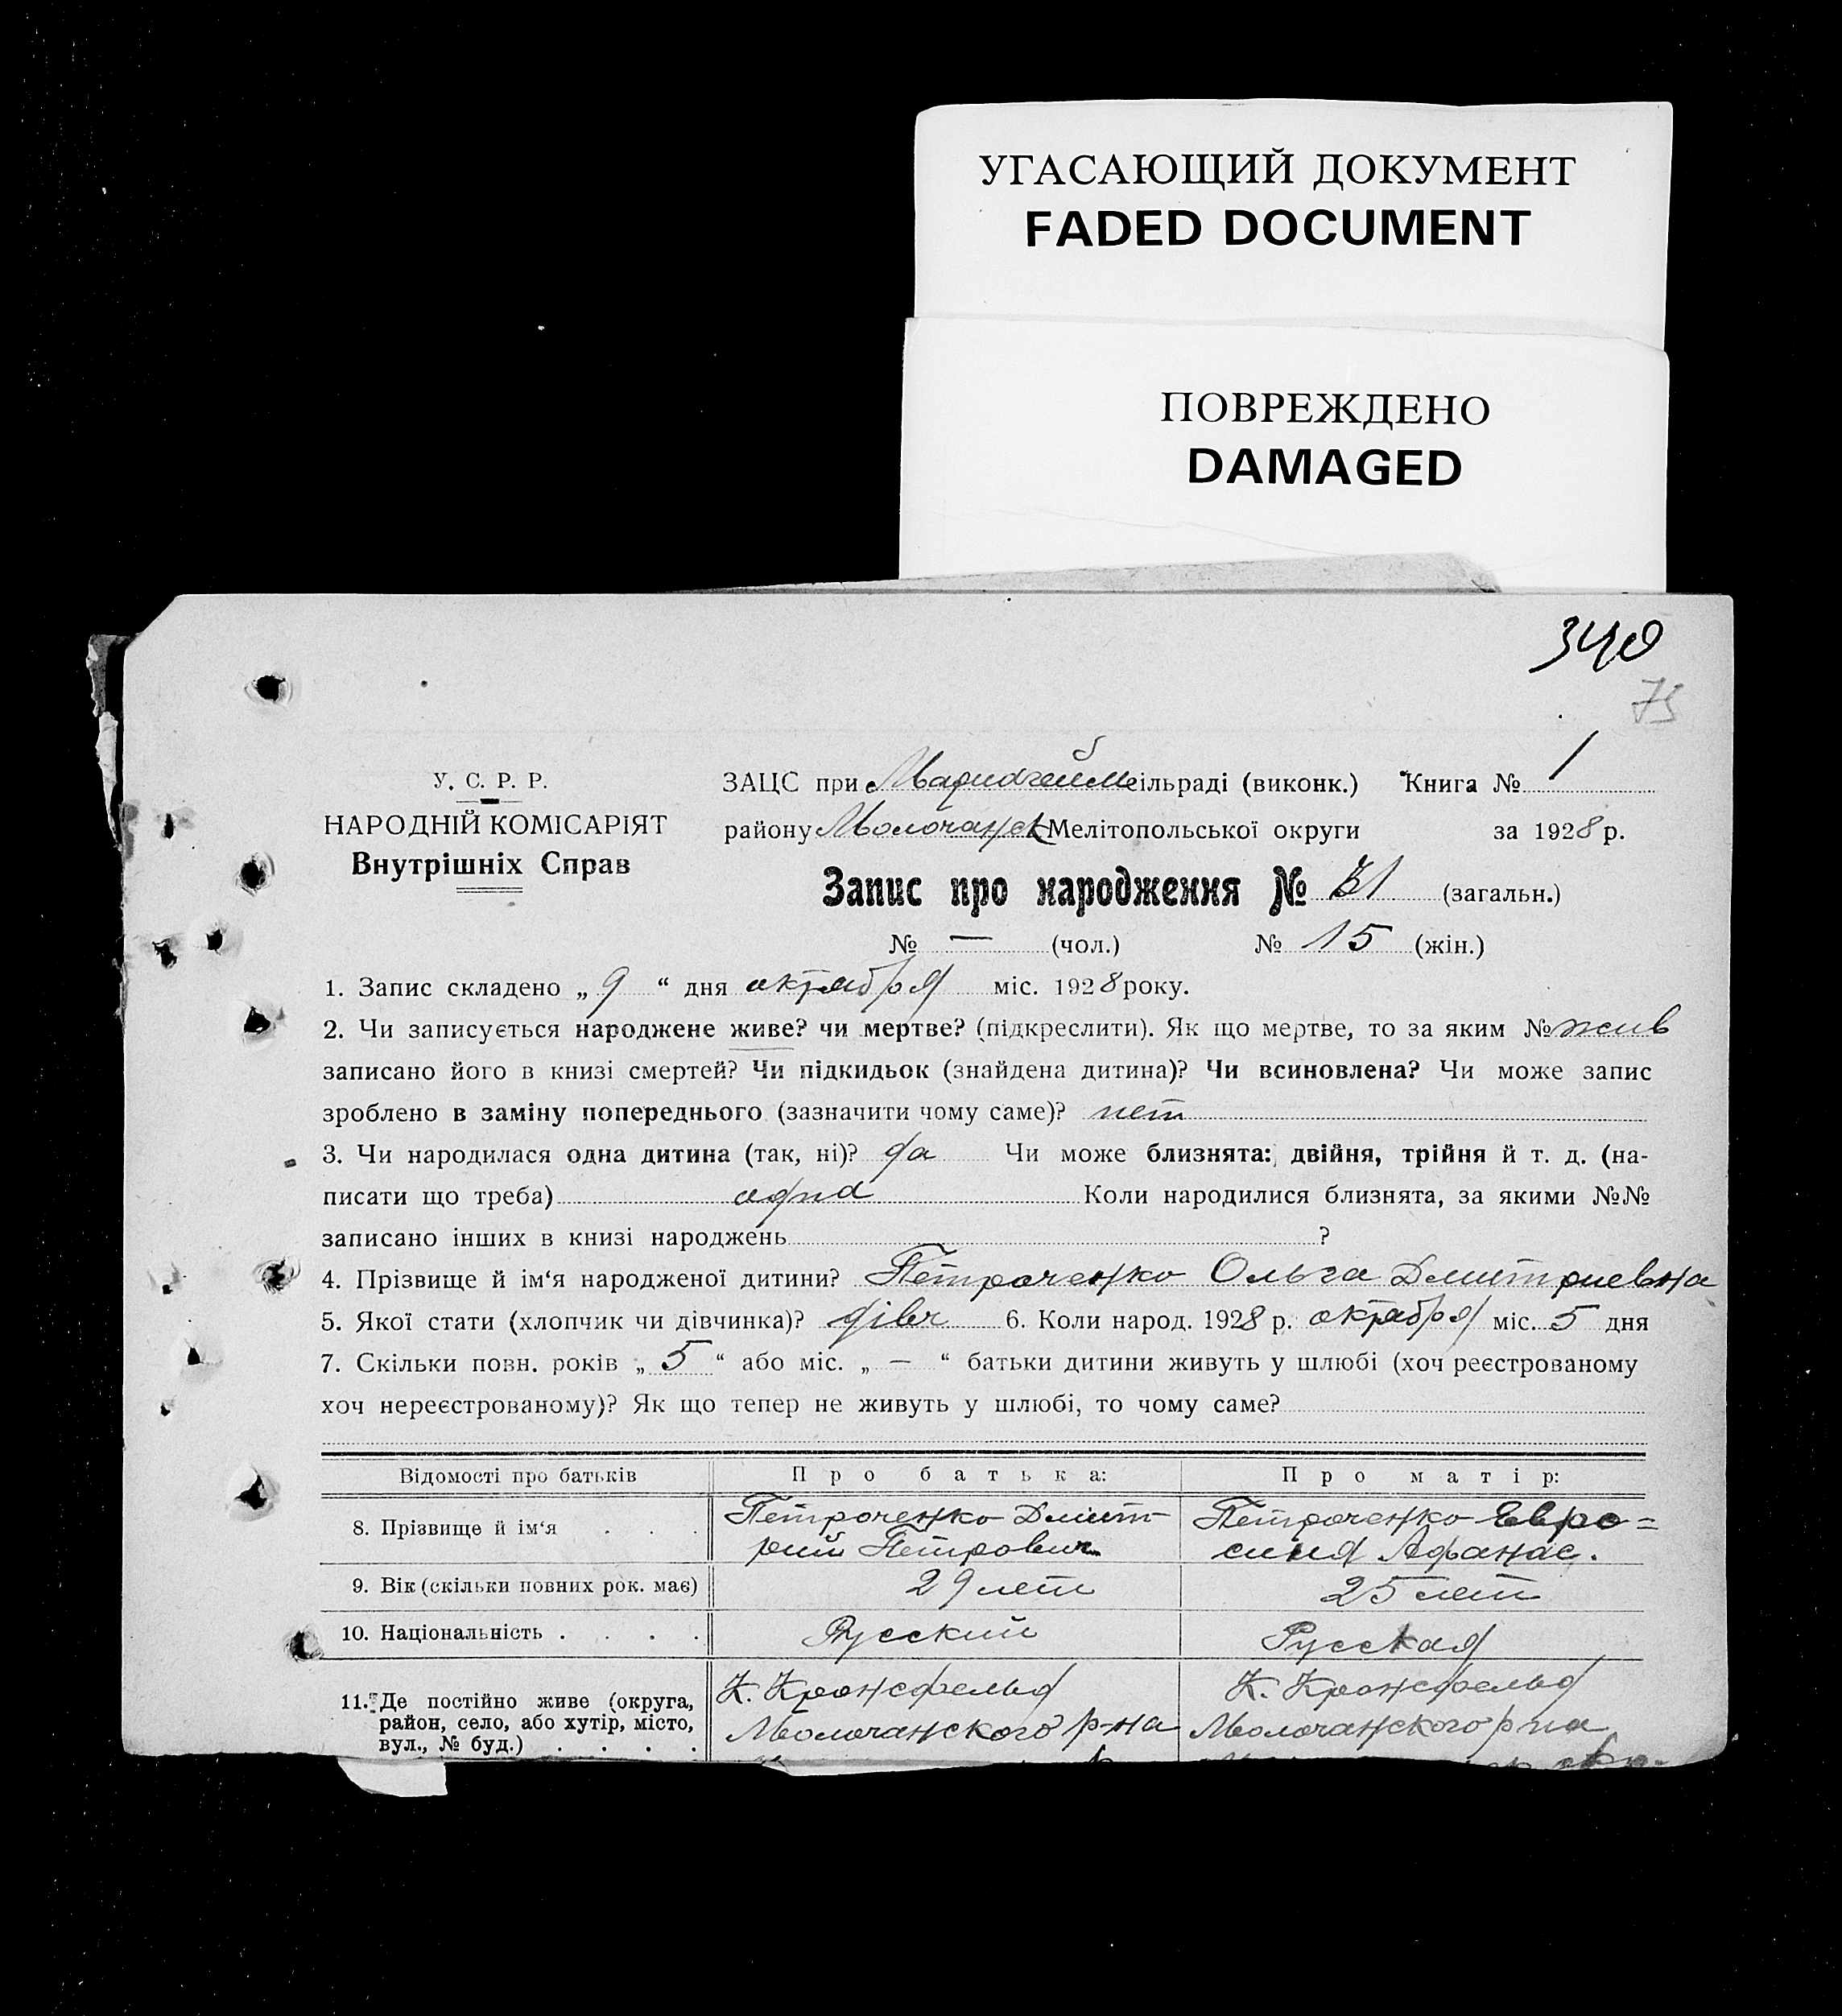 УГАСАЮЩИЙ ДОКУМЕНТ
FADED DOCUMENT
ПОВРЕЖДЕНО
DAMAGED
340
75
У. С. Р. Р.
НАРОДНІЙ КОМІСАРІЯТ
Внутрішніх Справ
ЗАЦС при сільраді (виконк.) Книга № 1
району Молочанск Мелітопольської округи за 1928 р.
Запис про народження № 31 (загальн.)
№ — (чол.) № 15 (жін.)
1. Запис складено „ 9 “ дня октября міс. 1928 року.
2. Чи записується народжене живе? чи мертве? (підкреслити). Як що мертве, то за яким № жив
записано його в книзі смертей? Чи підкидьок (знайдена дитина)? Чи всиновлена? Чи може запис
зроблено в заміну попереднього (зазначити чому саме)? нет
3. Чи народилася одна дитина (так, ні)? да Чи може близнята: двійня, трійня й т. д. (на-
писати що треба) одна Коли народилися близнята, за якими №№
записано інших в книзі народжень ?
4. Прізвище й ім‘я народженої дитини? Петроченко Ольга Дмитриевна
5. Якої стати (хлопчик чи дівчинка)? дівч 6. Коли народ. 1928 р. октября міс. 5 дня
7. Скільки повн. років „ 5 “ або міс. „ — “ батьки дитини живуть у шлюбі (хоч реєстрованому
хоч нереєстрованому)? Як що тепер не живуть у шлюбі, то чому саме?
Відомості про батьків Про батька: Про матір:
8. Прізвище й ім‘я . . . Петроченко Дмит- Петроченко Евро=
рий Петрович синия Афанас.
9. Вік (скільки повних рок. має) 29 лет 25 лет
10. Національність . . . . Русский Русская
11. Де постійно живе (округа, К. Кронсфельд К. Кронсфельд
район, село, або хутір, місто, Молочанского р-на Молочанского р-на
вул., № буд.) . . . .